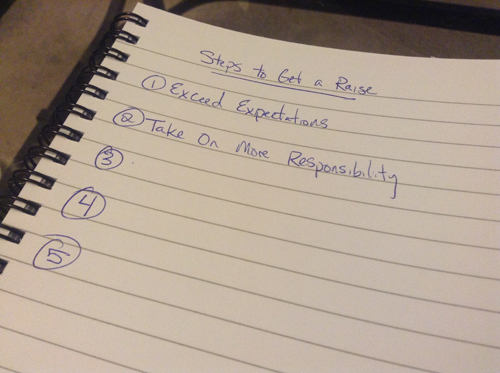 Steps to Get a Raise
① Exceed Expectations
② Take On More Responsibility
③
④
⑤